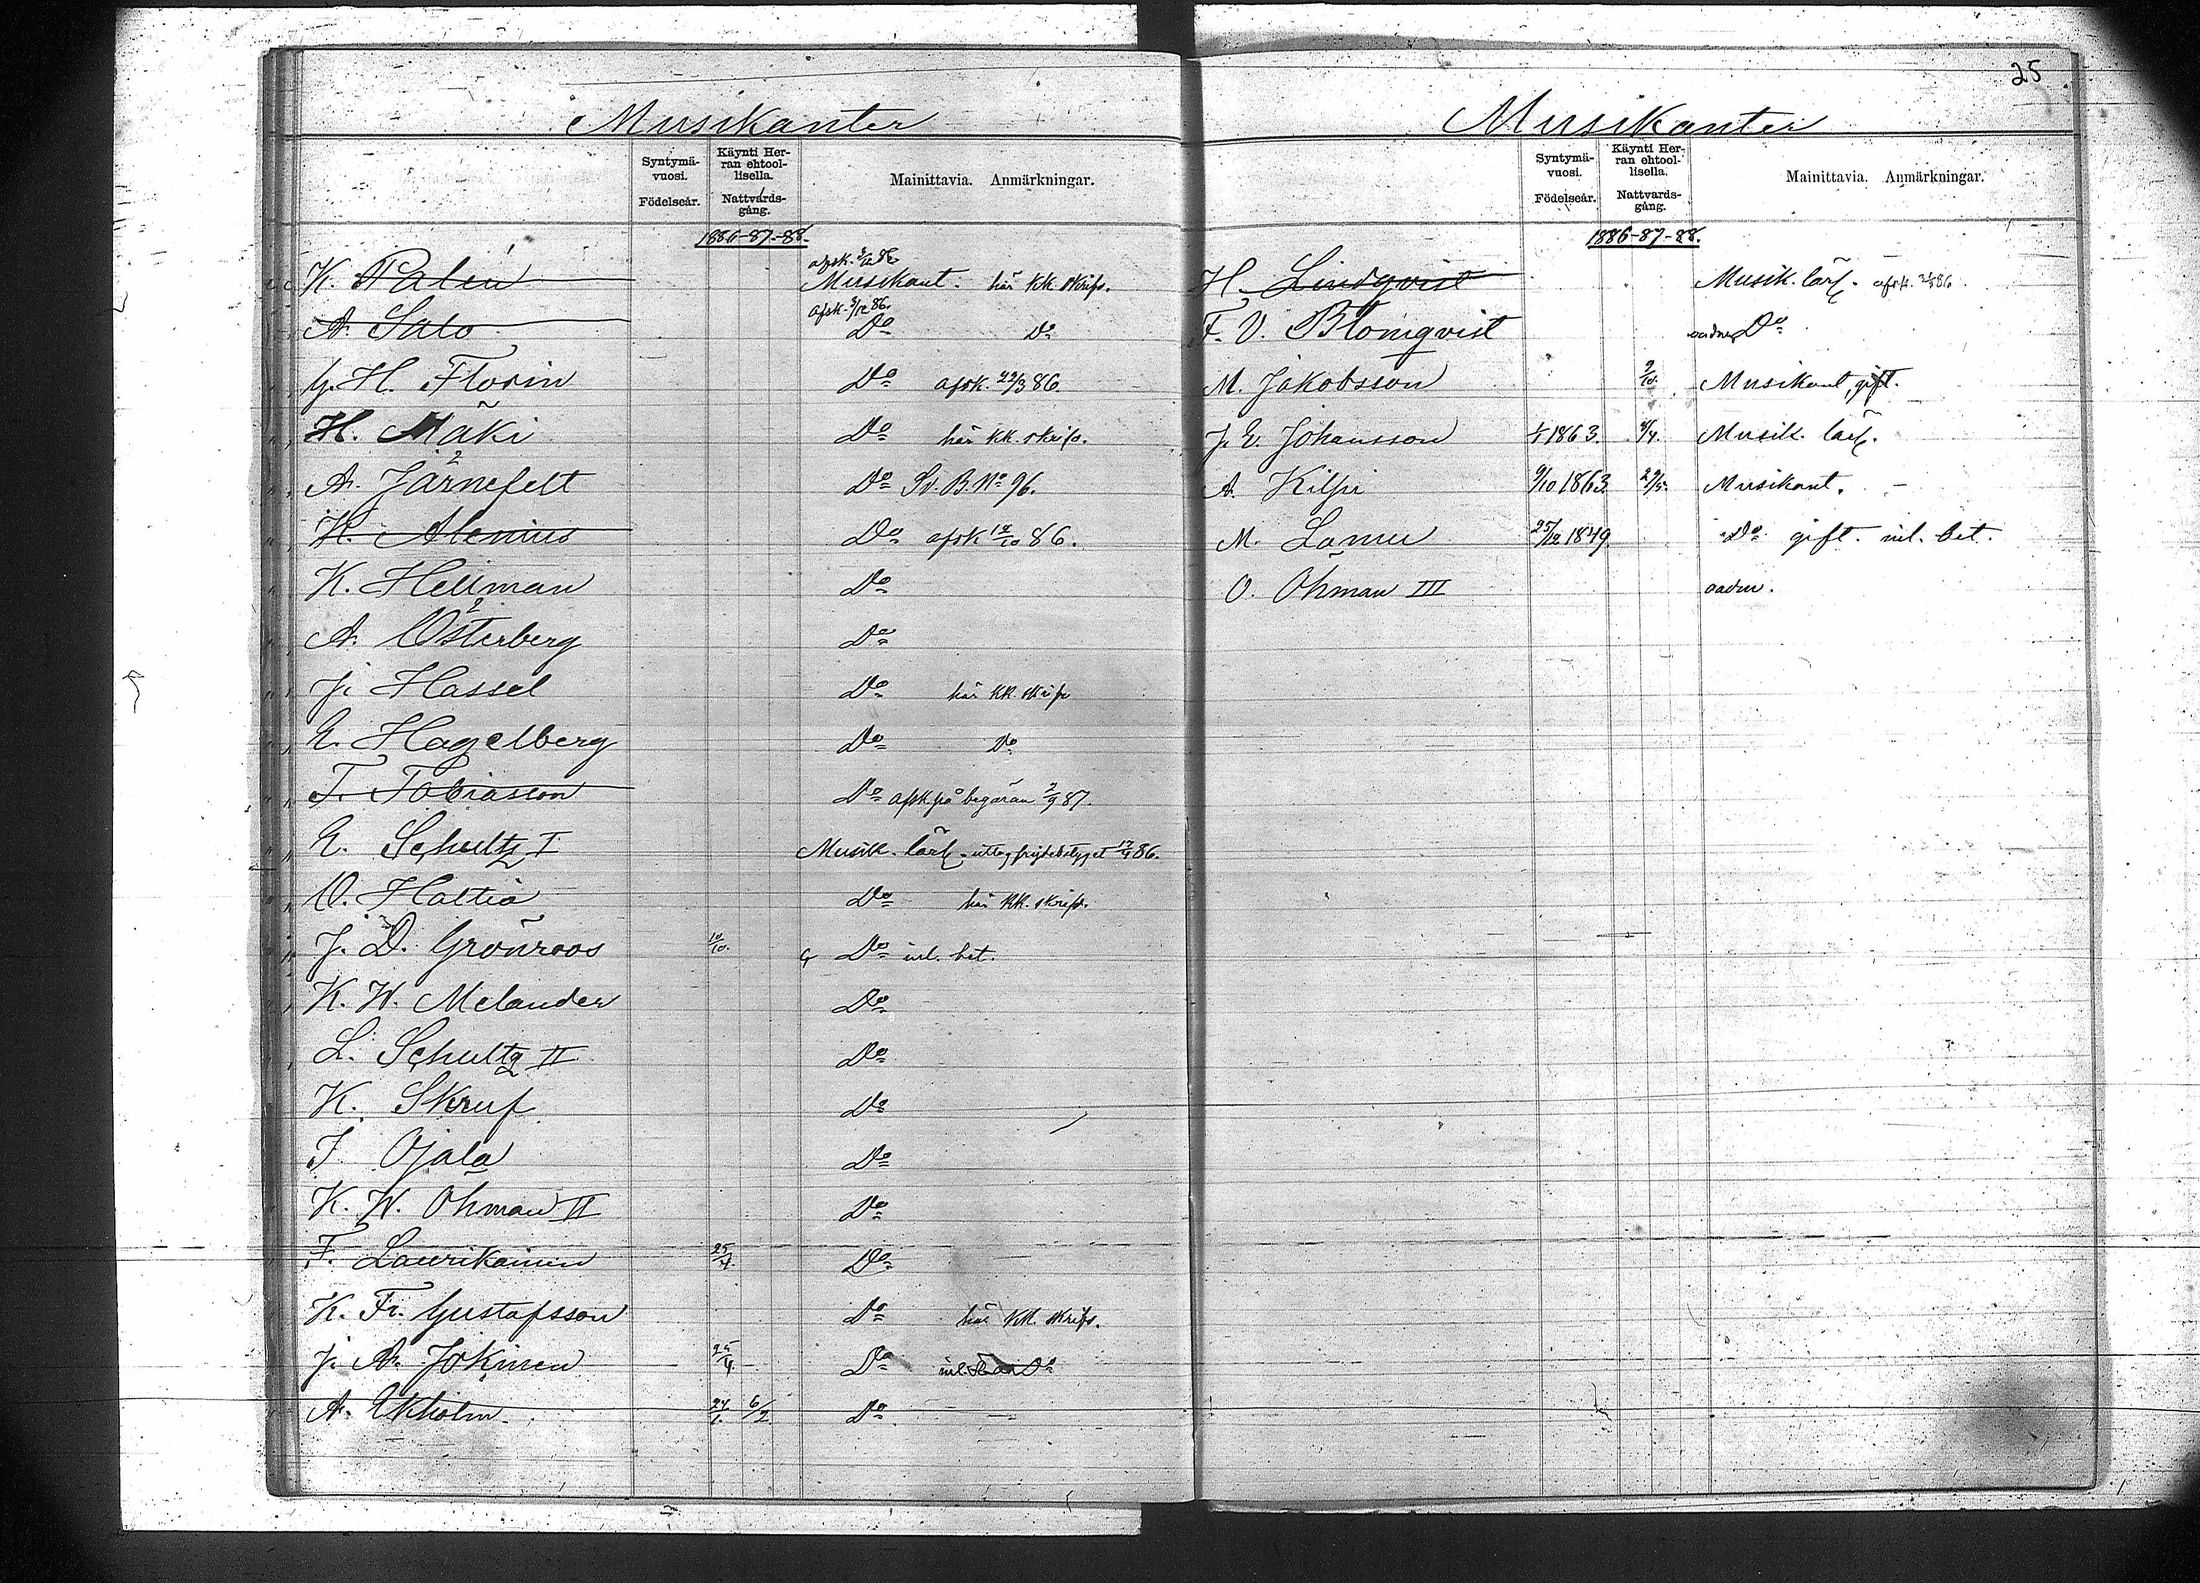 25
Musikanter
Syntymävuosi. Födelseår. Käynti Herran ehtoollisella. Nattvardsgång. Mainittavia. Anmärkningar.
1886-87-88.
afsk. 3/12 86.
K. Palén Musikant. här kk. skrifs.
afsk. 3/12 86.
A. Salo Do Do
G. H. Florin Do afsk. 22/3 86.
H. Mäki Do här kk. skrifs.
A. Järnefelt Do Sv. B. No 96.
K. Alenius Do afsk 12/10 86.
K. Hellman Do
A. Österberg Do
J. Hassel Do här kk. skrifs
E. Hagelberg Do Do
T. Tobiasson Do afsk på begäran 2/9 87.
E. Schultz I Musik. lärl. 86.
V. Haltia Do här kk. skrifs.
J. D. Grönroos 10/10. Do inl. bet.
K. W. Melander Do
L. Schultz II Do
K. Skruf Do
F. Ojala Do
K. W. Öhman II Do
F. Laurikainen 25/4. Do
K. Fr. Gustafsson Do här kk. skrifs.
J. A. Jokinen 25/4. Do inl.
A. Ekholm. 24/1. 6/2 Do
Musikanter
Syntymävuosi. Födelseår. Käynti Herran ehtoollisella. Nattvardsgång. Mainittavia. Anmärkningar.
1886-87-88.
H. Lindqvist Musik. lärl. afsk. 86
F. V. Blomqvist Do
M. Jakobsson 9/10. Musikant, gift.
J. E. Johansson 1/1 1863. Musik. lärl.
A. Kilpi 9/10 1863. 29/5. Musikant.
M. Lamu 25/12 1849. Do gift. inl. bet.
O. Öhman III